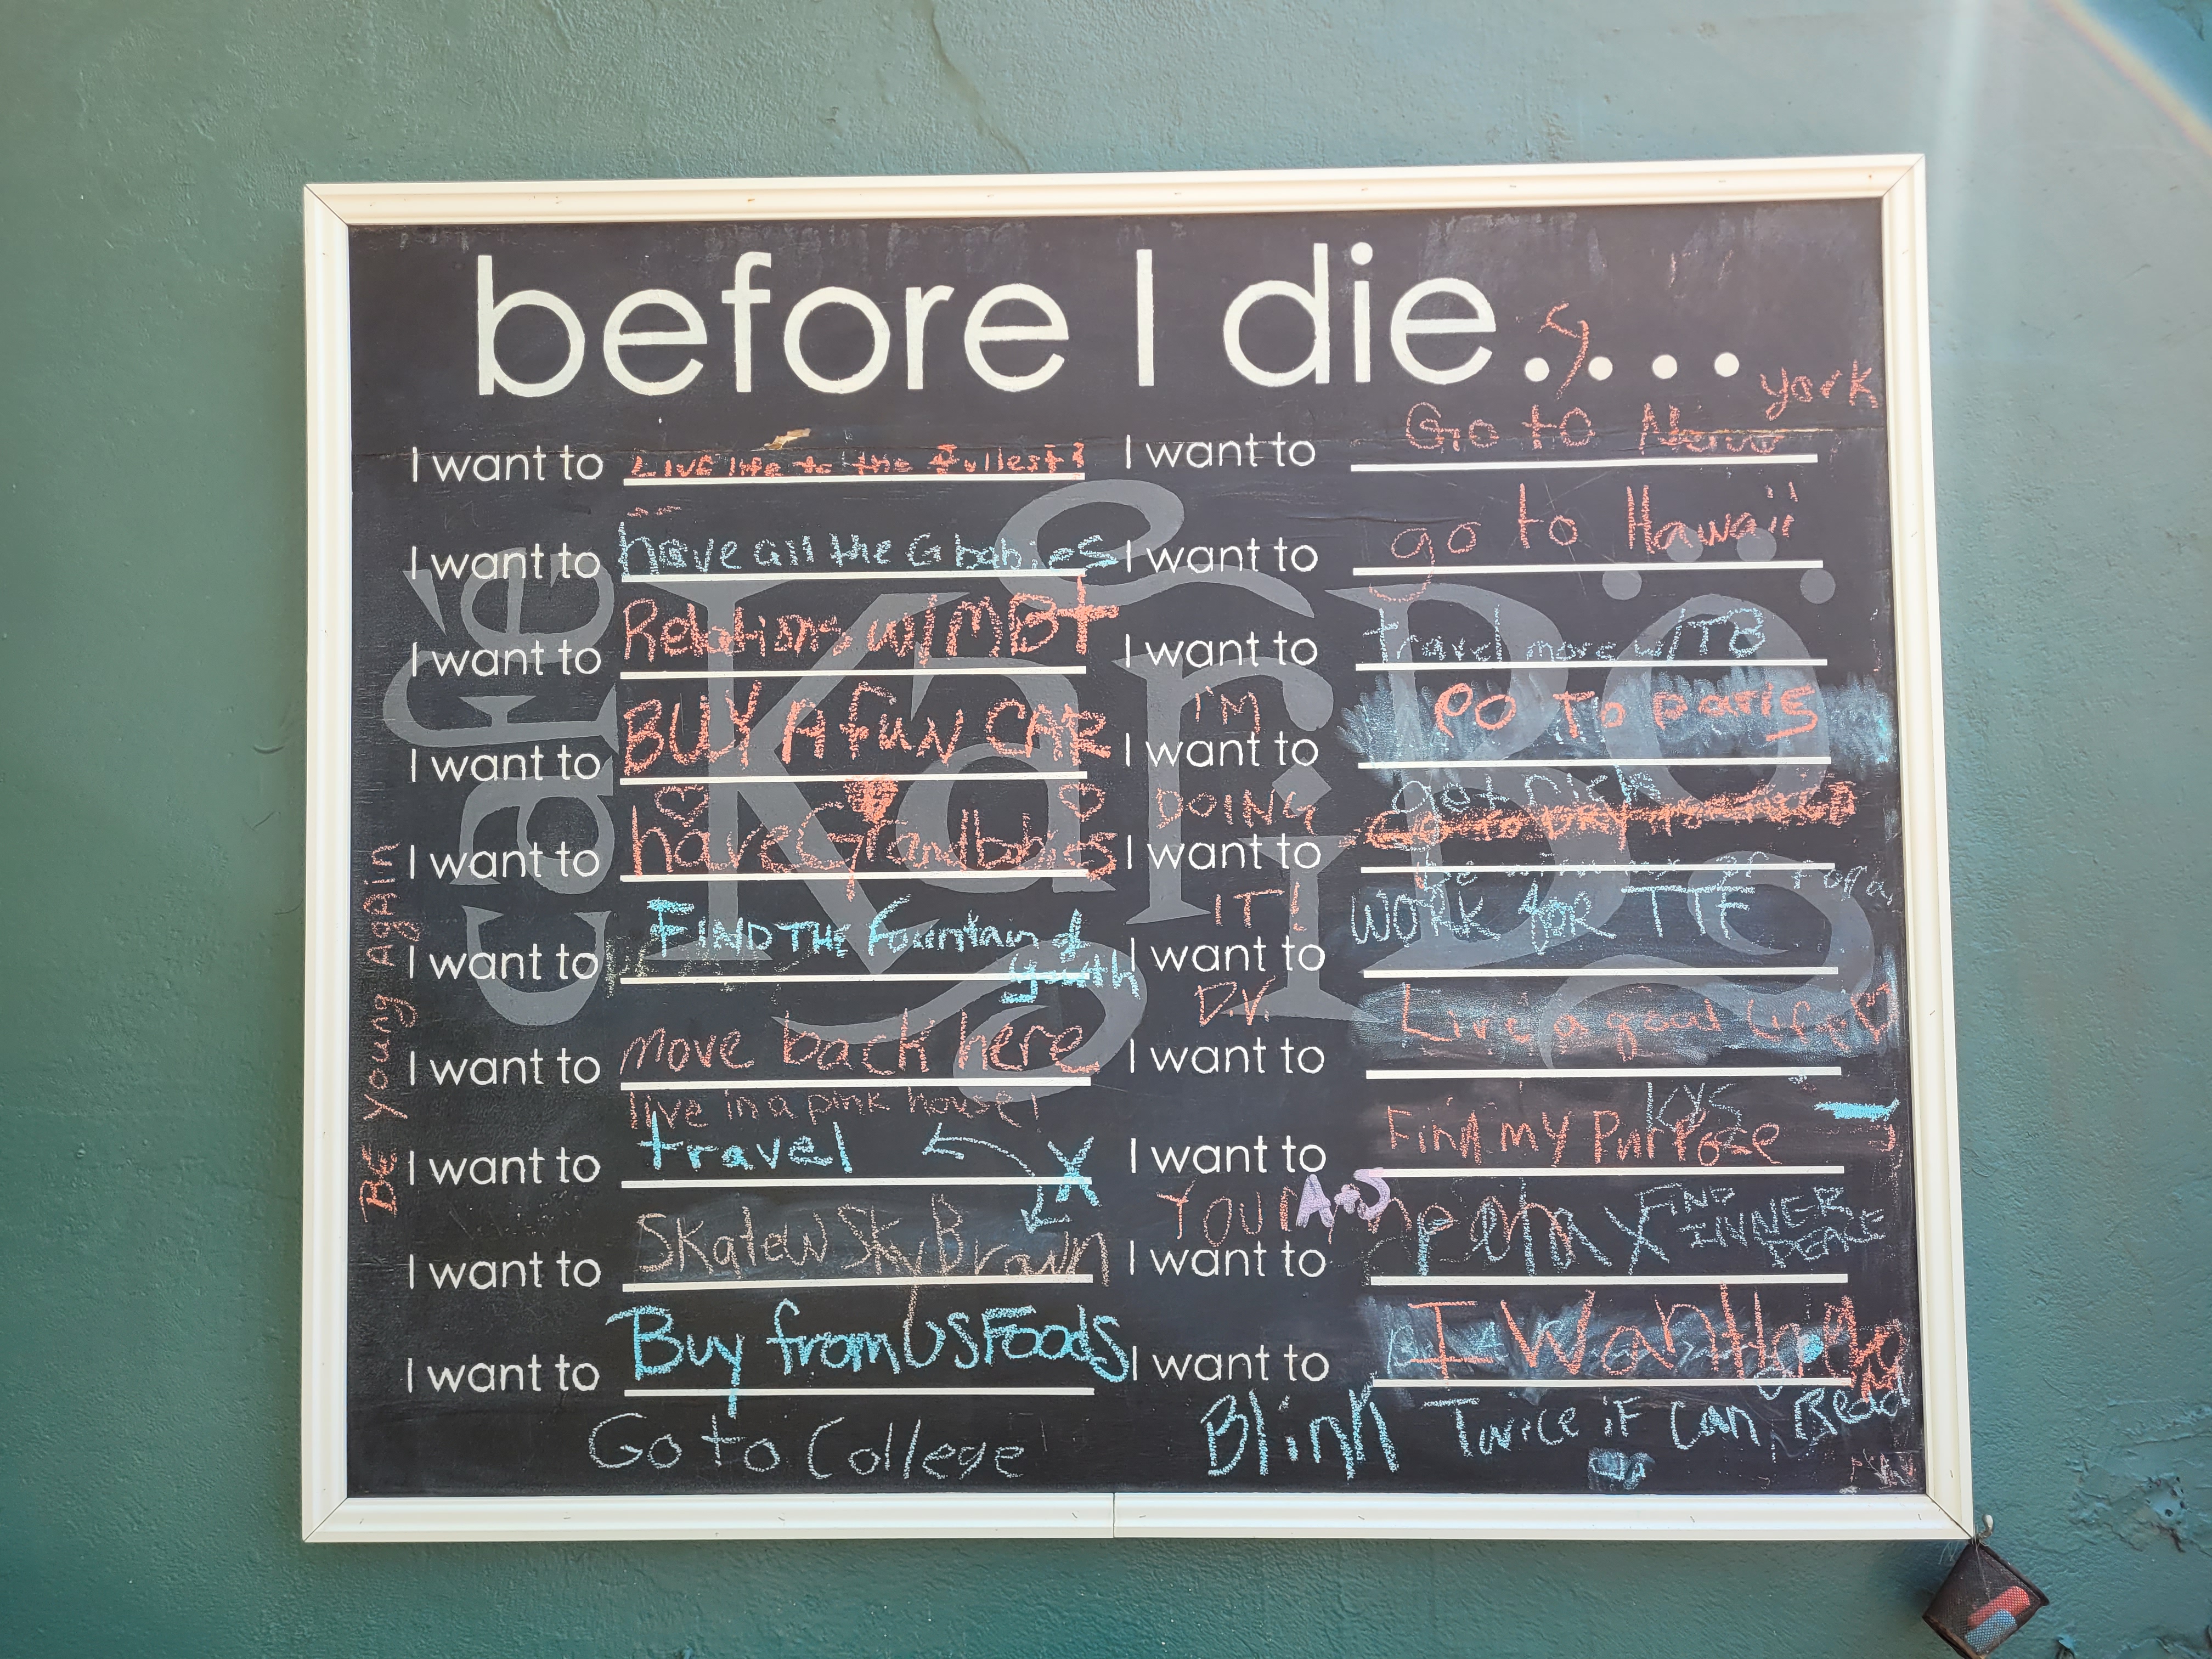 before I die.....
I want to Live life to the fullest
I want to have all the G babies
I want to Relations w/ MBT
I want to BUY A fun CAR
I want to have Grandbabies
I want to FIND THE Fountain of
youth
I want to move back here
live in a pink house!
I want to travel
I want to Skate w Sky Brown
I want to Buy from US FOODS
Go to College
BE Young Again
café
KariBö
I want to Go to New york
I want to go to Hawaii
I want to travel more w/ TB
I want to go To paris
I want to get rich
I want to WORK for TTF
I want to Live a good Life
KYS
I want to Find my Purpose
I want to FIND
INNER
PEACE
I want to I Want
Blink Twice if Can Read
I'M
DOING
IT!